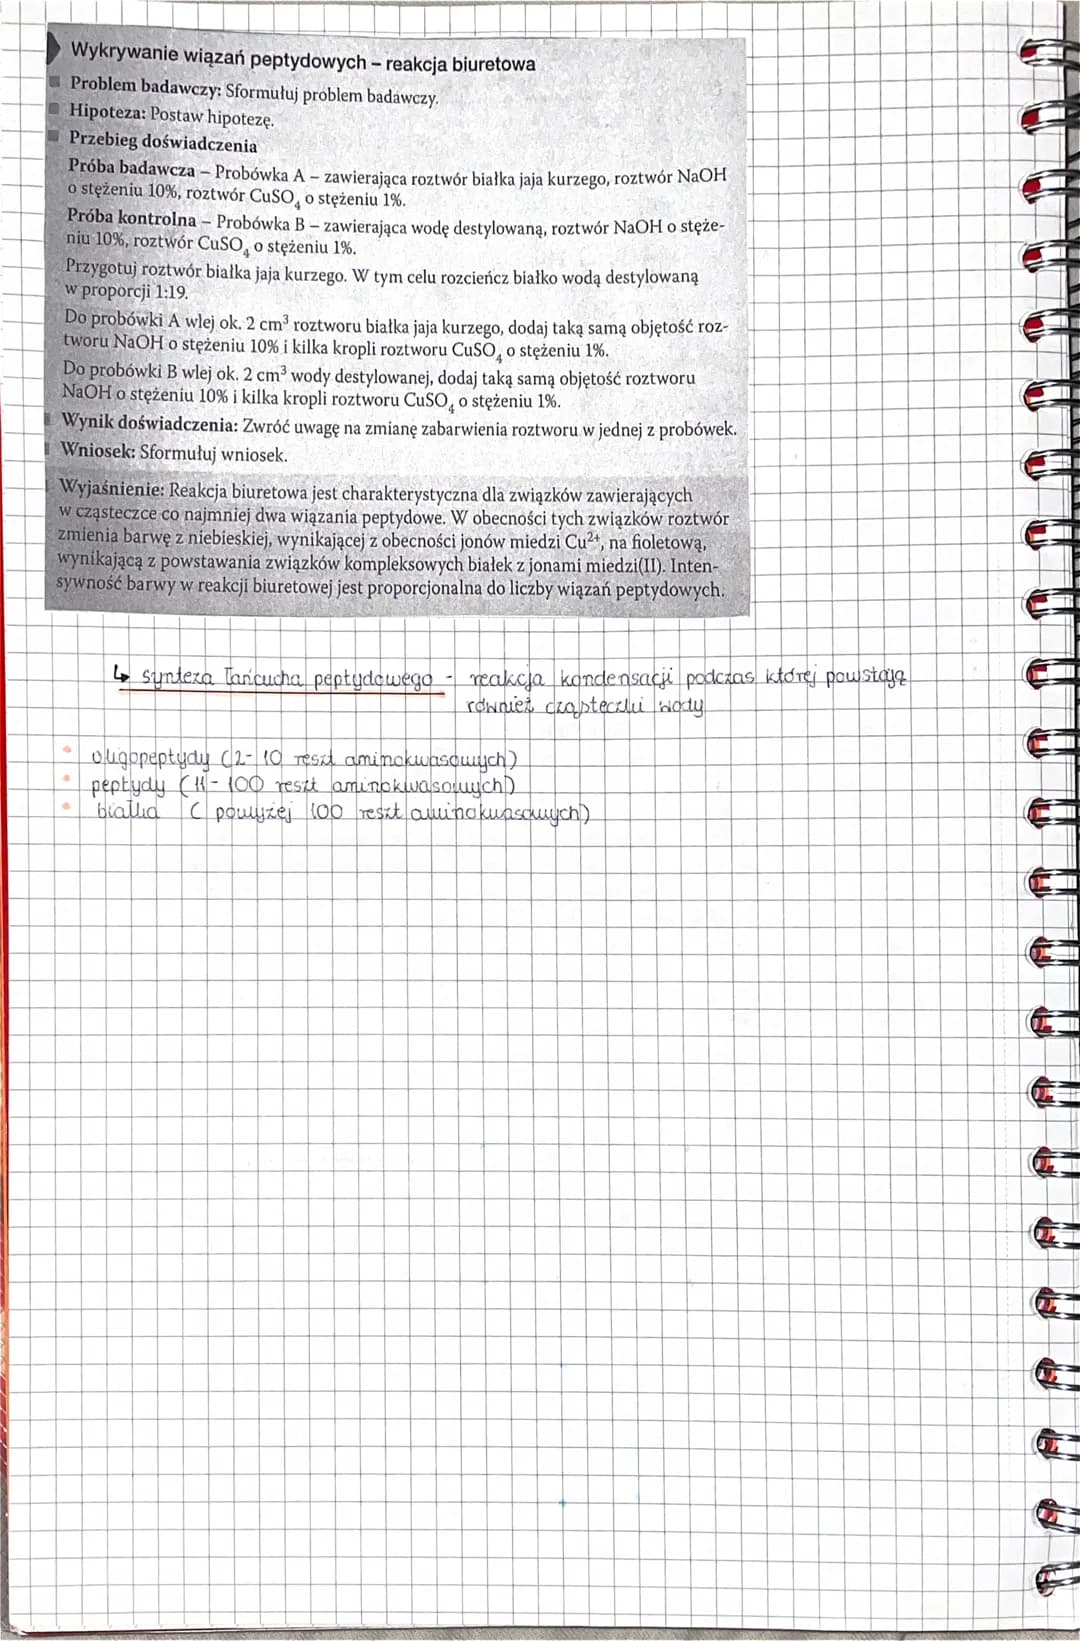 Wykrywanie wiązań peptydowych – reakcja biuretowa
Problem badawczy: Sformułuj problem badawczy.
Hipoteza: Postaw hipotezę.
Przebieg doświadczenia
Próba badawcza – Probówka A – zawierająca roztwór białka jaja kurzego, roztwór NaOH
o stężeniu 10%, roztwór CuSO₄ o stężeniu 1%.
Próba kontrolna – Probówka B – zawierająca wodę destylowaną, roztwór NaOH o stęże-
niu 10%, roztwór CuSO₄ o stężeniu 1%.
Przygotuj roztwór białka jaja kurzego. W tym celu rozcieńcz białko wodą destylowaną
w proporcji 1:19.
Do probówki A wlej ok. 2 cm³ roztworu białka jaja kurzego, dodaj taką samą objętość roz-
tworu NaOH o stężeniu 10% i kilka kropli roztworu CuSO₄ o stężeniu 1%.
Do probówki B wlej ok. 2 cm³ wody destylowanej, dodaj taką samą objętość roztworu
NaOH o stężeniu 10% i kilka kropli roztworu CuSO₄ o stężeniu 1%.
Wynik doświadczenia: Zwróć uwagę na zmianę zabarwienia roztworu w jednej z probówek.
Wniosek: Sformułuj wniosek.
Wyjaśnienie: Reakcja biuretowa jest charakterystyczna dla związków zawierających
w cząsteczce co najmniej dwa wiązania peptydowe. W obecności tych związków roztwór
zmienia barwę z niebieskiej, wynikającej z obecności jonów miedzi Cu²⁺, na fioletową,
wynikającą z powstawania związków kompleksowych białek z jonami miedzi(II). Inten-
sywność barwy w reakcji biuretowej jest proporcjonalna do liczby wiązań peptydowych.
↳ synteza łańcucha peptydowego - reakcja kondensacji podczas której powstają
również cząsteczki wody
• oligopeptydy (2-10 reszt aminokwasowych)
• peptydy (11-100 reszt aminokwasowych)
• białka (powyżej 100 reszt aminokwasowych)